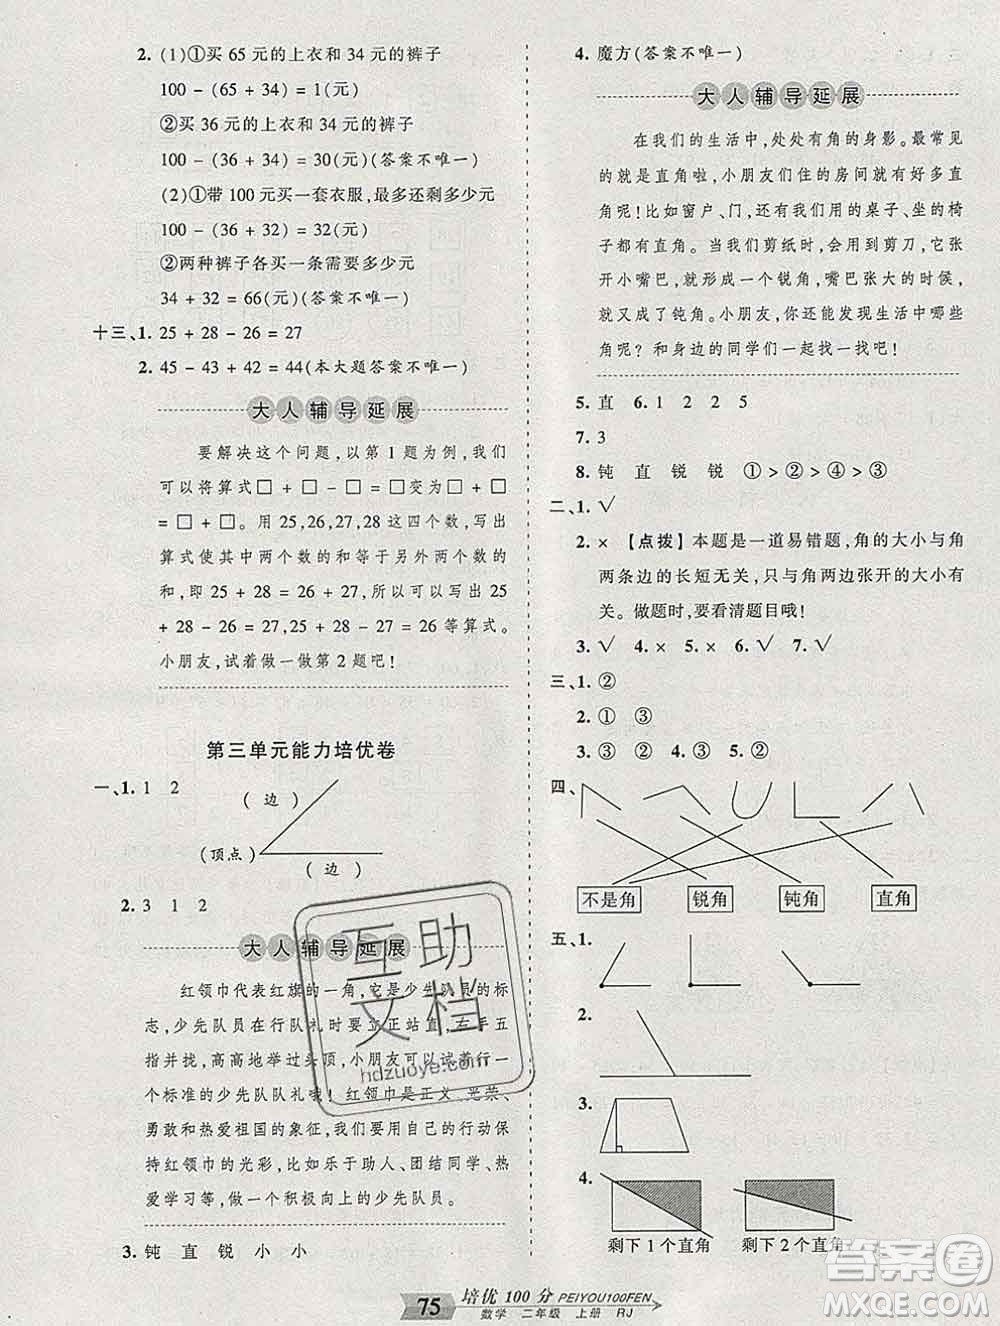 2. (1)①买 65 元的上衣和 34 元的裤子
100 - (65 + 34) = 1(元)
②买 36 元的上衣和 34 元的裤子
100 - (36 + 34) = 30(元)(答案不唯一)
(2)①带 100 元买一套衣服,最多还剩多少元
100 - (36 + 32) = 32(元)
②两种裤子各买一条需要多少元
34 + 32 = 66(元)(答案不唯一)
十三、1. 25 + 28 - 26 = 27
2. 45 - 43 + 42 = 44(本大题答案不唯一)
大人辅导延展
要解决这个问题,以第 1 题为例,我们
可以将算式□ + □ - □ = □变为□ + □
= □ + □。用 25,26,27,28 这四个数,写出
算式使其中两个数的和等于另外两个数的
和,即 25 + 28 = 26 + 27,就可以写出 25
+ 28 - 26 = 27,25 + 28 - 27 = 26 等算式。
小朋友,试着做一做第 2 题吧!
第三单元能力培优卷
一、1. 1 2
(边)
(顶点)
(边)
2. 3 1 2
大人辅导延展
红领巾代表红旗的一角,它是少先队员的标
志,少先队员在行队礼时要立正站直,右手五
指并拢,高高地举过头顶,小朋友可以试着行
一个标准的少先队队礼哦!红领巾是正义、光荣、
勇敢和热爱祖国的象征,我们要用自己的行动保
持红领巾的光彩,比如乐于助人、团结同学、热
爱学习等,做一个积极向上的少先队员。
3. 钝 直 锐 小 小
4. 魔方(答案不唯一)
大人辅导延展
在我们的生活中,处处有角的身影。最常见
的就是直角啦,小朋友们住的房间就有好多直
角呢!比如窗户、门,还有我们用的桌子、坐的椅
子都有直角。当我们剪纸时会用到剪刀,它张
开小嘴巴,就形成一个锐角,嘴巴张大的时候,
就成了钝角。小朋友,你还能发现生活中哪些
角呢?和身边的同学们一起找一找吧!
5. 直 6. 1 2 2 5
7. 3
8. 钝 直 锐 锐 ①>②>④>③
二、1. √
2. × 【点拨】本题是一道易错题,角的大小与角
两条边的长短无关,只与角两边张开的大小有
关。做题时,要看清题目哦!
3. √ 4. × 5. × 6. √ 7. √
三、1. ②
2. ① ③
3. ③ ② 4. ③ 5. ②
四、
不是角 锐角 钝角 直角
五、1.
2.
3.
4.
剩下 1 个直角 剩下 2 个直角
75 培优 100 分 PEIYOU100FEN
数学 二年级 上册 RJ
互助
文档
hdzuoye.com
答案圈
MXQE.COM